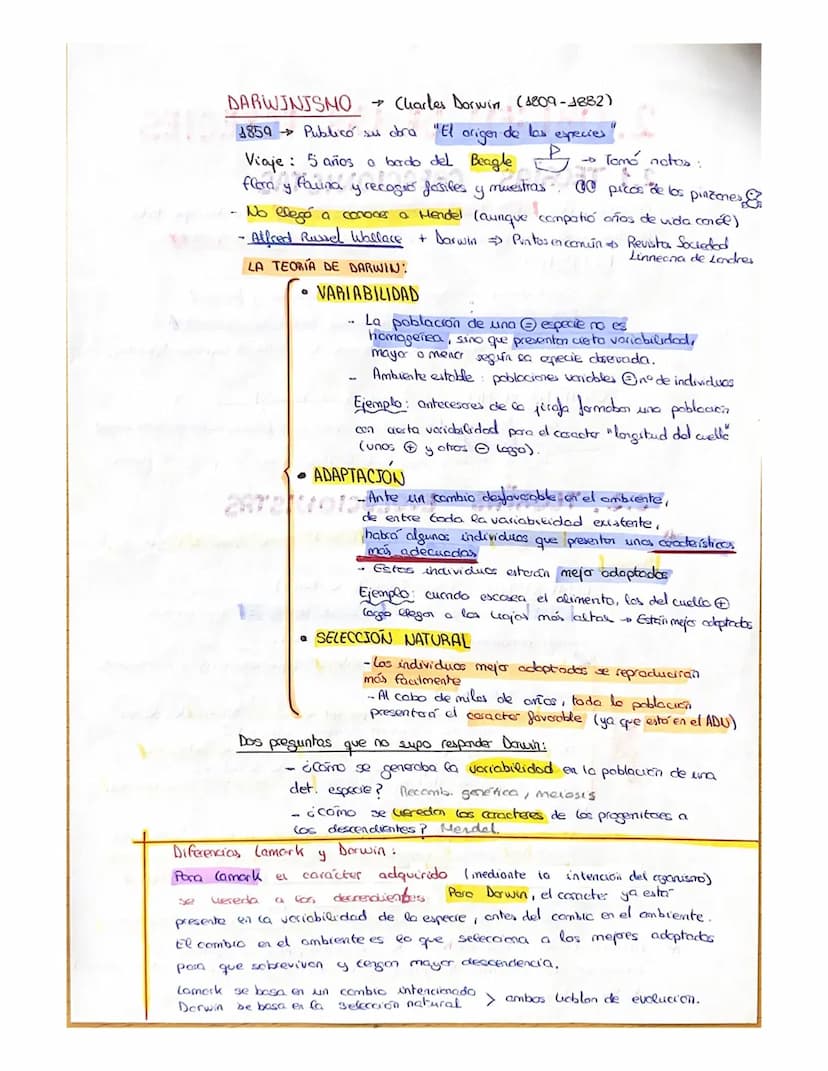 DARWINISMO → Charles Darwin (1809-1882)
1859 → Publicó su obra "El origen de las especies"
Viaje: 5 años a bordo del Beagle → Tomó notas:
flora y fauna y recogió fósiles y muestras. picos de los pinzones
- No llegó a conocer a Mendel (aunque compatió años de vida con él)
- Alfred Russel Wallace + Darwin ⇒ Puntos en común ⇒ Revista Sociedad
Linneana de Londres
LA TEORÍA DE DARWIN:
• VARIABILIDAD
- La población de una ⊜ especie no es
homogénea, sino que presentan cierta variabilidad,
mayor o menor según la especie observada.
- Ambiente estable: poblaciones variables ⊜ nº de individuos
Ejemplo: antecesores de la jirafa formaban una población
con cierta variabilidad para el carácter "longitud del cuello"
(unos ⊕ y otros ⊖ largo).
• ADAPTACIÓN
- Ante un cambio desfavorable en el ambiente,
de entre toda la variabilidad existente,
habrá algunos individuos que presenten unas características
más adecuadas
- Estos individuos estarán mejor adaptados
Ejemplo: cuando escasea el alimento, los del cuello ⊕
largo llegan a las hojas más altas → Están mejor adaptados
• SELECCIÓN NATURAL
- Los individuos mejor adaptados se reproducirán
más facilmente
- Al cabo de miles de años, toda la población
presentará el carácter favorable (ya que está en el ADN)
Dos preguntas que no supo responder Darwin:
- ¿Cómo se generaba la variabilidad en la población de una
det. especie? Recomb. genética, meiosis
- ¿Cómo se heredan los caracteres de los progenitores a
los descendientes? Mendel.
Diferencias Lamark y Darwin:
Para Lamark el carácter adquirido (mediante la intención del organismo)
se hereda a los descendientes. Para Darwin, el carácter ya está
presente en la variabilidad de la especie, antes del cambio en el ambiente.
El cambio en el ambiente es lo que selecciona a los mejores adaptados
para que sobrevivan y tengan mayor descendencia.
Lamark se basa en un cambio intencionado
Darwin se basa en la selección natural > ambos hablan de evolución.